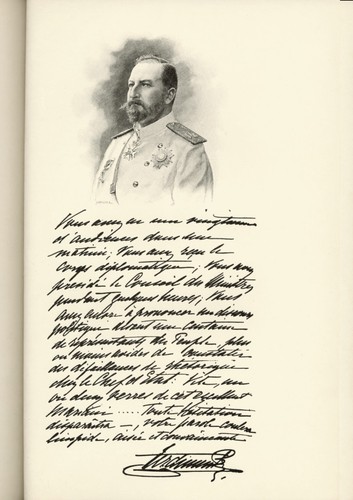 Vous avez eu une vingtaine
d'audiences dans une
matinée; Vous avez reçu le
corps diplomatique; Vous avez
présidé le Conseil des Ministres
pendant quelques heures; Vous
avez encore à prononcer un discours
politique devant une centaine
de représentants du Peuple, plus
ou moins avides de constater
des défaillances de rhétorique
chez le Chef d'Etat: Vite, un
ou deux verres de cet excellent
Mariani ..... Toute hésitation
disparaîtra —, votre parole coulera
limpide, aisée et convaincante
Ferdinand